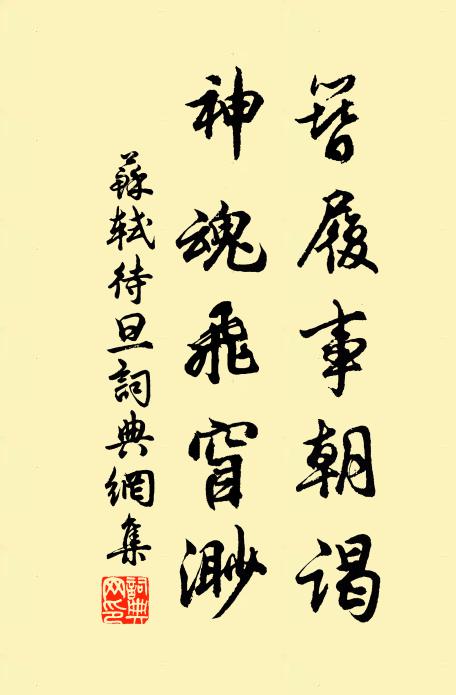 簪履事朝謁
神魂飛窅渺
蘇軾待旦詞典網集